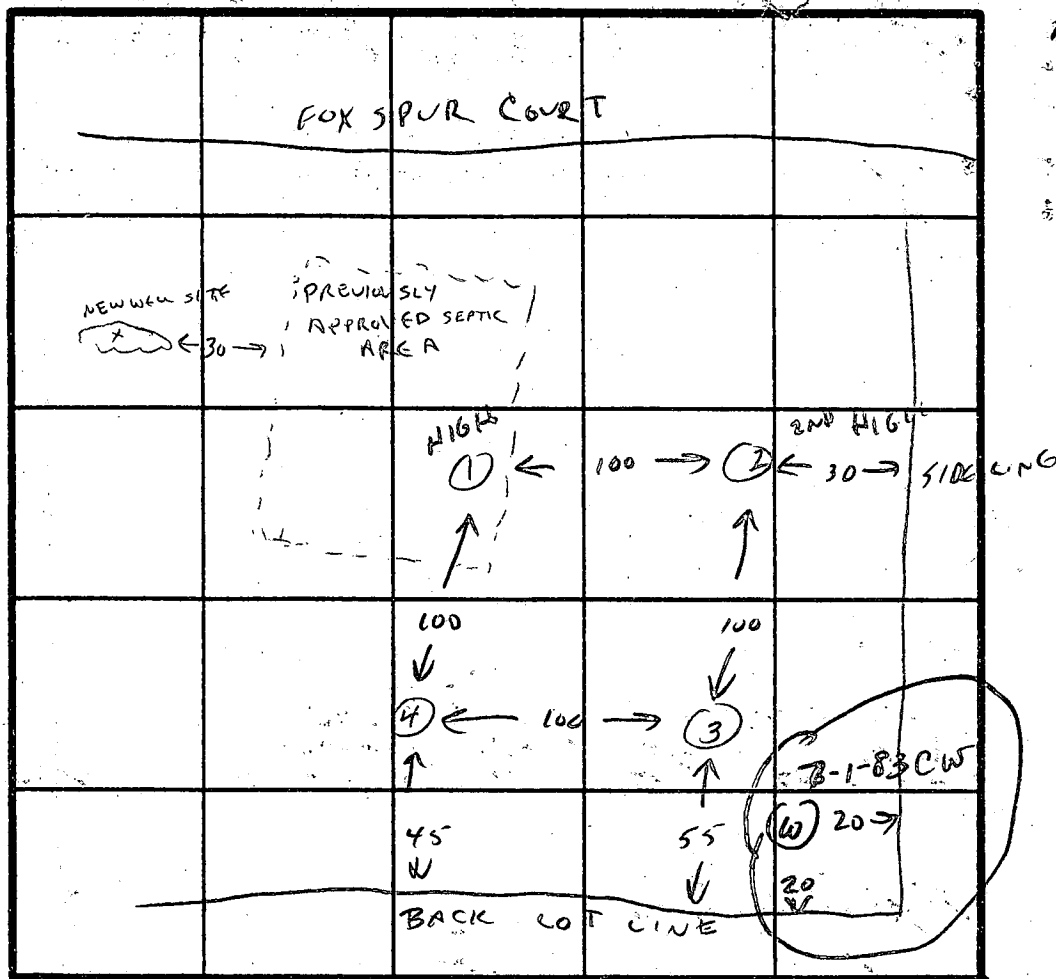 FOX SPUR COURT
NEW WELL SITE
X
30
PREVIOUSLY
APPROVED SEPTIC
AREA
HIGH
2ND HIGH
1
100
2
30
SIDE LINE
100
100
4
100
3
8-1-83 CW
W
20
45
55
20
BACK LOT LINE